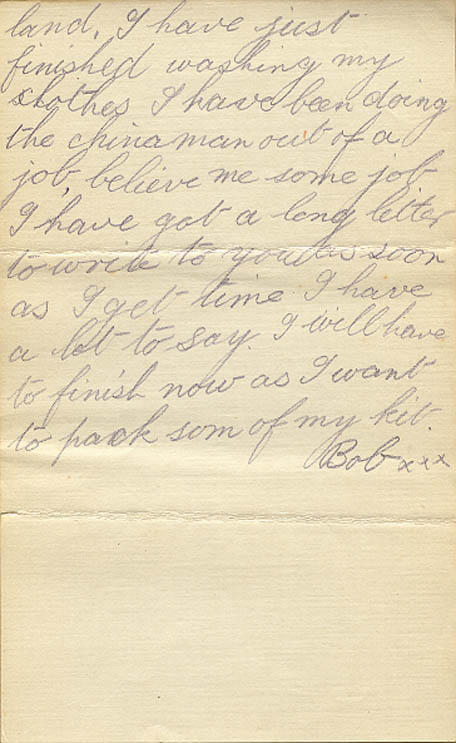 land, I have just
finished washing my
clothes I have been doing
the chinaman out of a
job, believe me some job
I have got a long letter
to write to you as soon
as I get time I have
a lot to say. I will have
to finish now as I want
to pack som of my kit.
Bob xxx